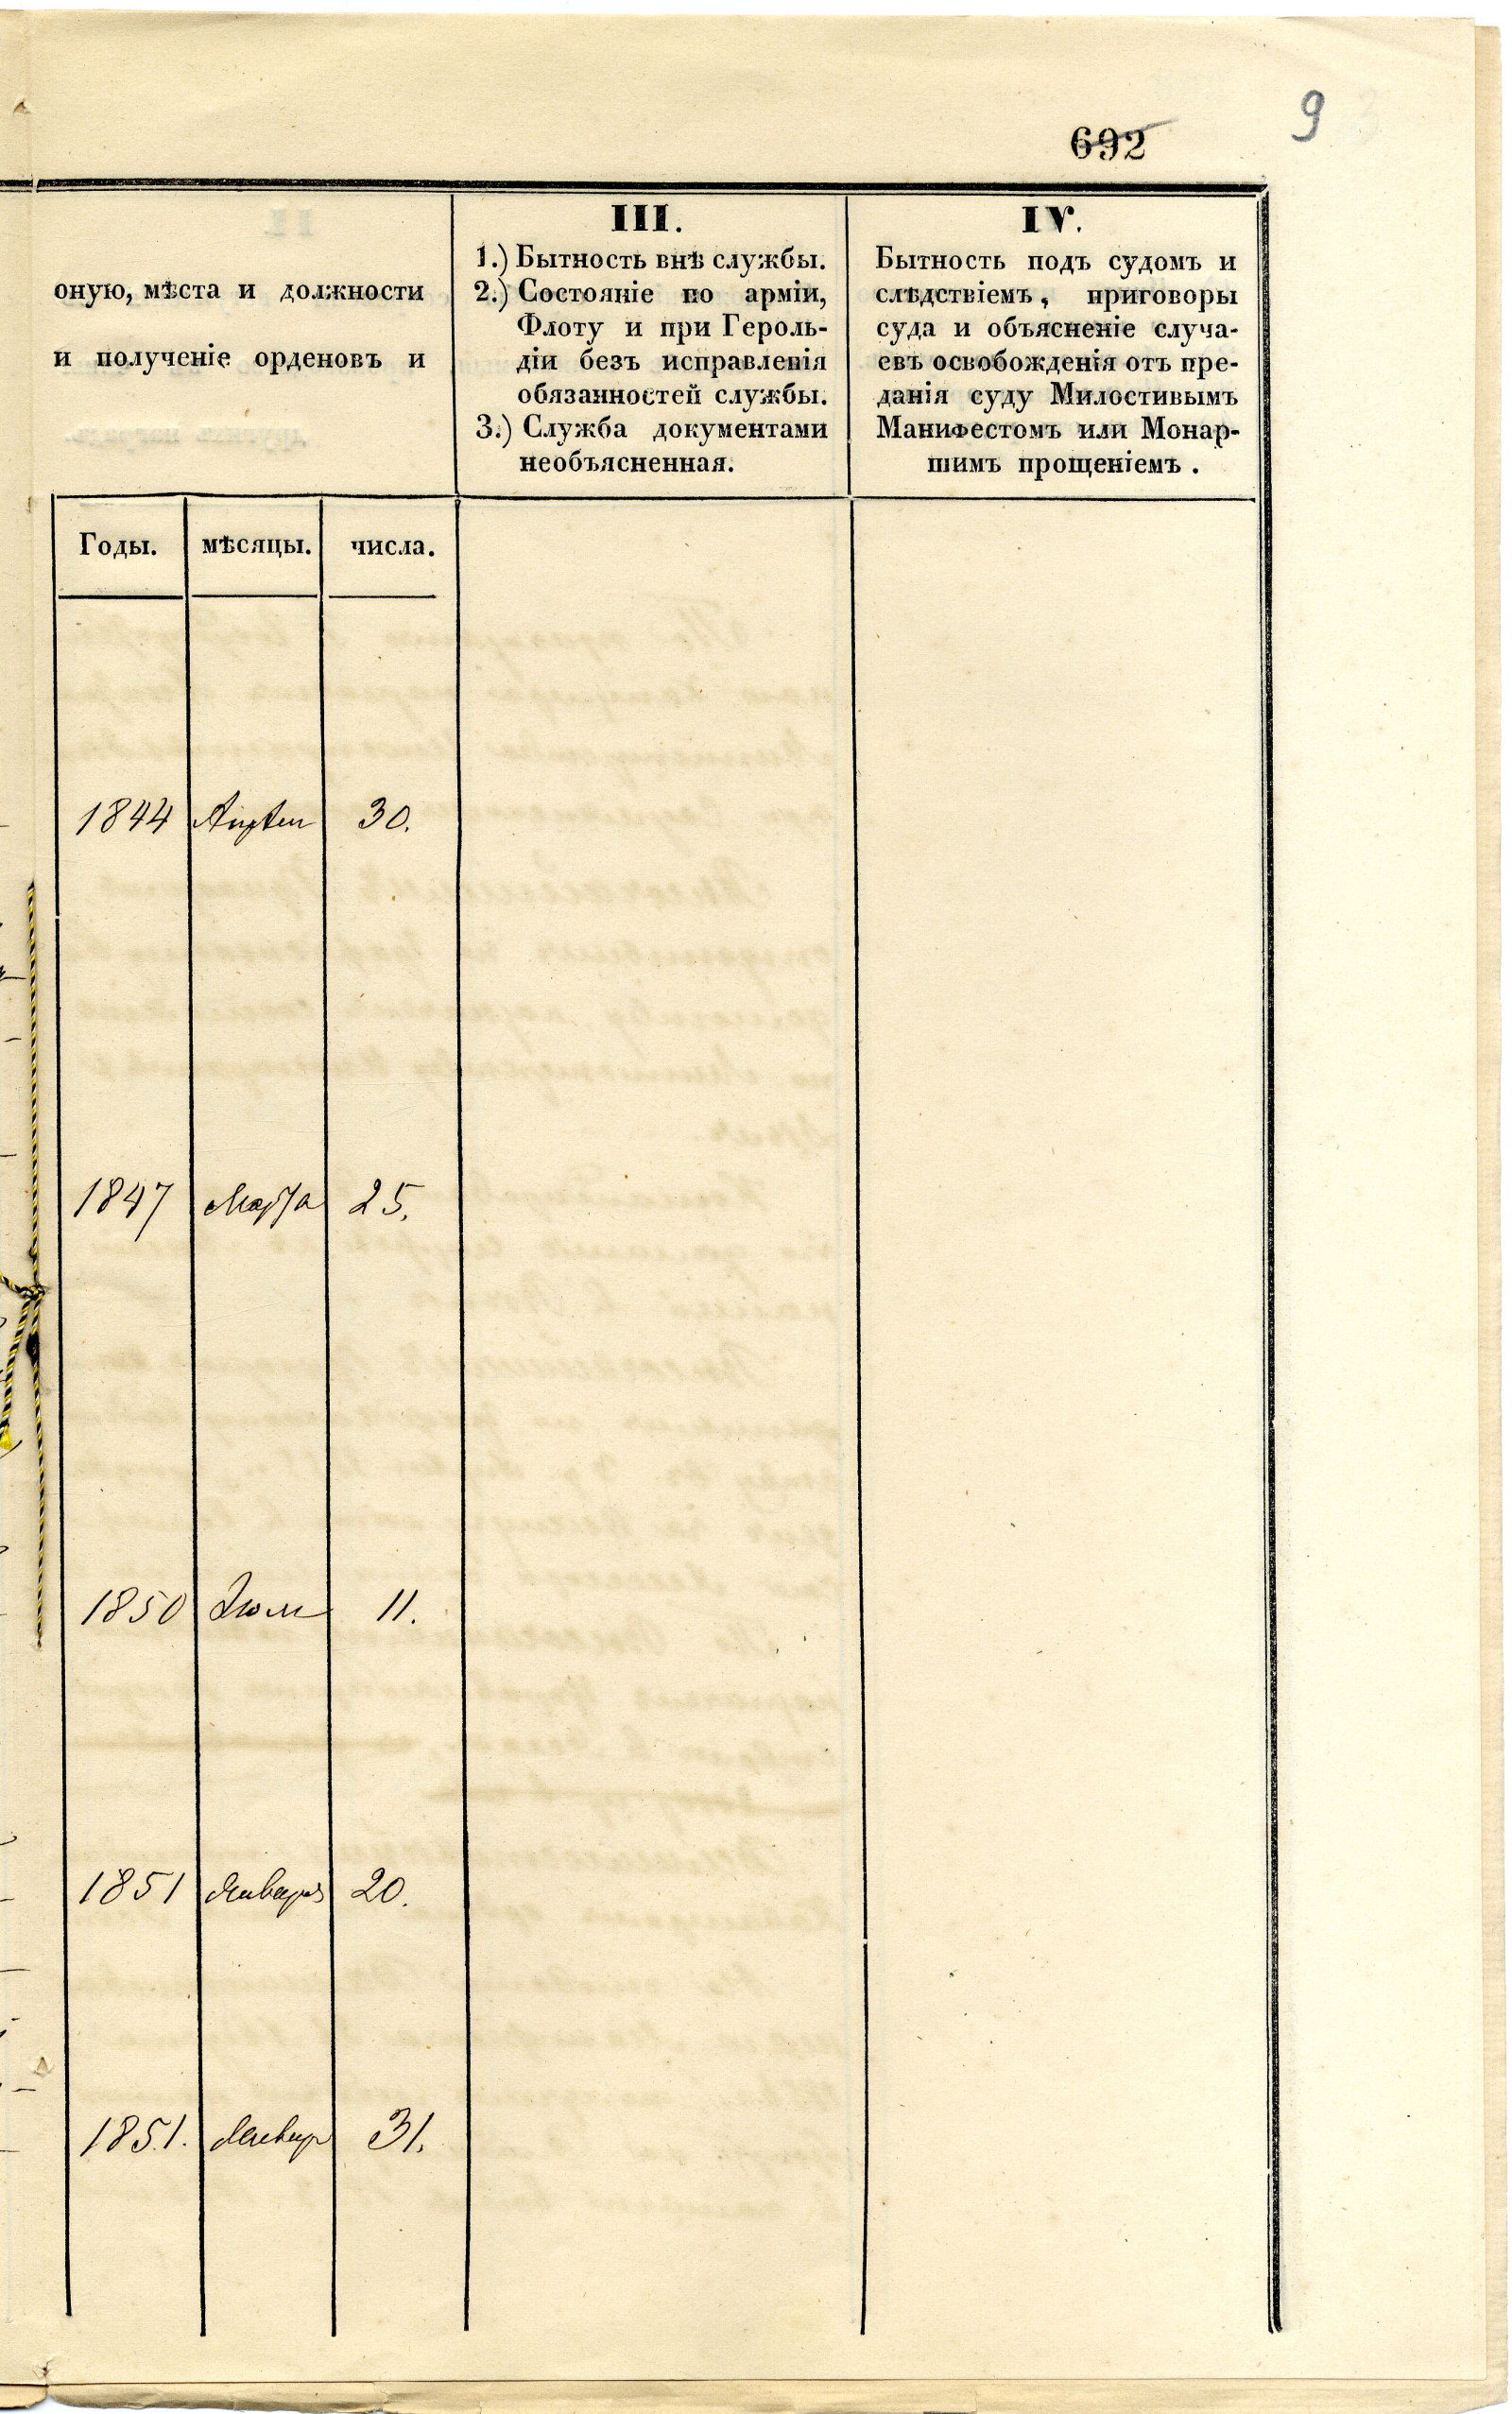 9
692
оную, мѣста и должности
и полученіе орденовъ и
III.
1.) Бытность внѣ службы.
2.) Состояніе по арміи,
Флоту и при Героль-
діи безъ исправленія
обязанностей службы.
3.) Служба документами
необъясненная.
IV.
Бытность подъ судомъ и
слѣдствіемъ, приговоры
суда и объясненіе случа-
евъ освобожденія отъ пре-
данія суду Милостивымъ
Манифестомъ или Монар-
шимъ прощеніемъ.
Годы. мѣсяцы. числа.
1844 Апрѣля 30.
1847 Марта 25.
1850 Іюля 11.
1851 Января 20.
1851. Января 31.